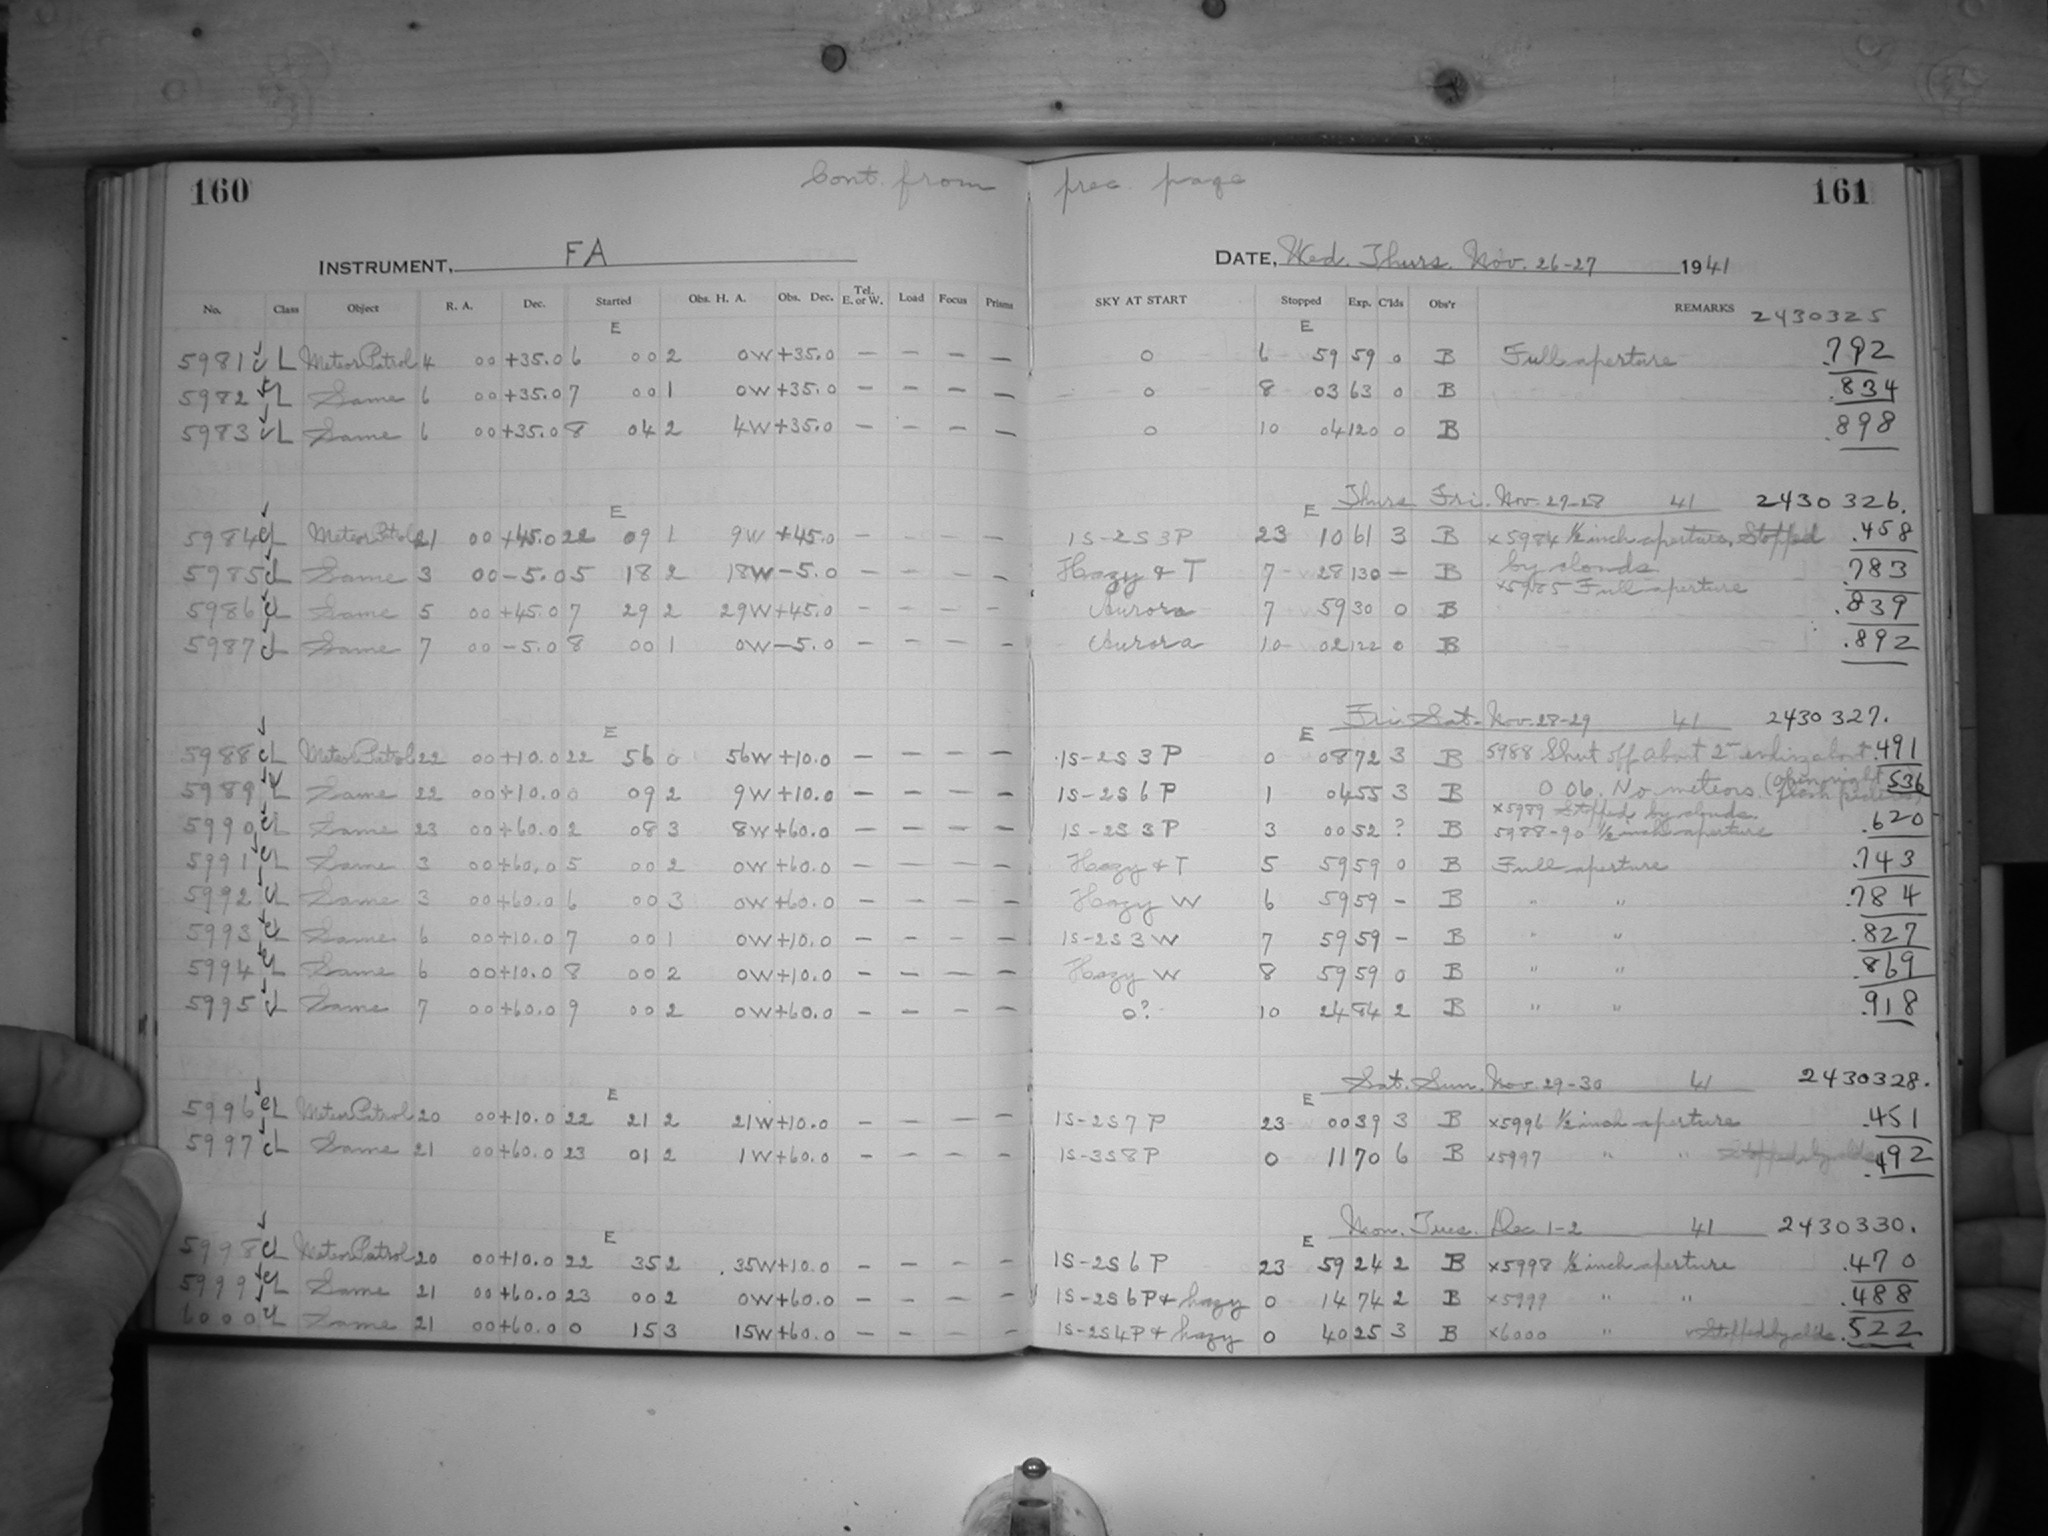 160 Cont. from prec. page 161
INSTRUMENT, FA DATE, Wed. Thurs. Nov. 26-27 1941
No. Class Object R. A. Dec. Started Obs. H. A. Obs. Dec. Tel. E. or W. Load Focus Prisms SKY AT START Stopped Exp. C'lds Obs'r REMARKS 2430325
E E
5981 cL Meteor Patrol 4 00 +35.0 6 00 2 0W +35.0 — — — — 0 6 59 59 0 B Full aperture .792
5982 cL Same 6 00 +35.0 7 00 1 0W +35.0 — — — — 0 8 03 63 0 B .834
5983 cL Same 6 00 +35.0 8 04 2 4W +35.0 — — — — 0 10 04 120 0 B .898
E E Thurs Fri. Nov. 27-28 41 2430326.
5984 cL Meteor Patrol 21 00 +45.0 22 09 1 9W +45.0 — — — — 1S-2S3P 23 10 61 3 B x5984 ½ inch aperture. Stopped .458
by clouds
5985 cL Same 3 00 -5.0 5 18 2 18W -5.0 — — — — Hazy & T 7 28 130 — B x5985 Full aperture .783
5986 cL Same 5 00 +45.0 7 29 2 29W +45.0 — — — — Aurora 7 59 30 0 B .839
5987 cL Same 7 00 -5.0 8 00 1 0W -5.0 — — — Aurora 10 02 122 0 B .892
E E Fri. Sat. Nov. 28-29 41 2430327.
5988 cL Meteor Patrol 22 00 +10.0 22 56 0 56W +10.0 — — — — 1S-2S 3 P 0 08 72 3 B 5988 Shut off about 2 ending about .491
5989 cL Same 22 00 +10.0 0 09 2 9W +10.0 — — — — 1S-2S6P 1 04 55 3 B 0 06. No meteors (open night flash pictures) .536
x5989 Stopped by clouds.
5990 cL Same 23 00 +60.0 2 08 3 8W +60.0 — — — — 1S-2S3P 3 00 52 ? B 5988-90 ½ inch aperture .620
5991 cL Same 3 00 +60.0 5 00 2 0W +60.0 — — — — Hazy & T 5 59 59 0 B Full aperture .743
5992 cL Same 3 00 +60.0 6 00 3 0W +60.0 — — — — Hazy W 6 59 59 - B " " .784
5993 cL Same 6 00 +10.0 7 00 1 0W +10.0 — — — — 1S-2S3W 7 59 59 - B " " .827
5994 cL Same 6 00 +10.0 8 00 2 0W +10.0 — — — — Hazy W 8 59 59 0 B " " .869
5995 cL Same 7 00 +60.0 9 00 2 0W +60.0 — — — — 0? 10 24 84 2 B " " .918
E E Sat. Sun. Nov. 29-30 41 2430328.
5996 cL Meteor Patrol 20 00 +10.0 22 21 2 21W +10.0 — — — — 1S-2S7P 23 00 39 3 B x5996 ½ inch aperture .451
5997 cL Same 21 00 +60.0 23 01 2 1W +60.0 — — — — 1S-3S8P 0 11 70 6 B x5997 " " Stopped by clds .492
E E Mon. Tues. Dec 1-2 41 2430330.
5998 cL Meteor Patrol 20 00 +10.0 22 35 2 35W +10.0 — — — — 1S-2S6P 23 59 24 2 B x5998 ½ inch aperture .470
5999 cL Same 21 00 +60.0 23 00 2 0W +60.0 — — — — 1S-2S6P & hazy 0 14 74 2 B x5999 " " .488
6000 cL Same 21 00 +60.0 0 15 3 15W +60.0 — — — — 1S-2S4P & hazy 0 40 25 3 B x6000 " Stopped by clds .522